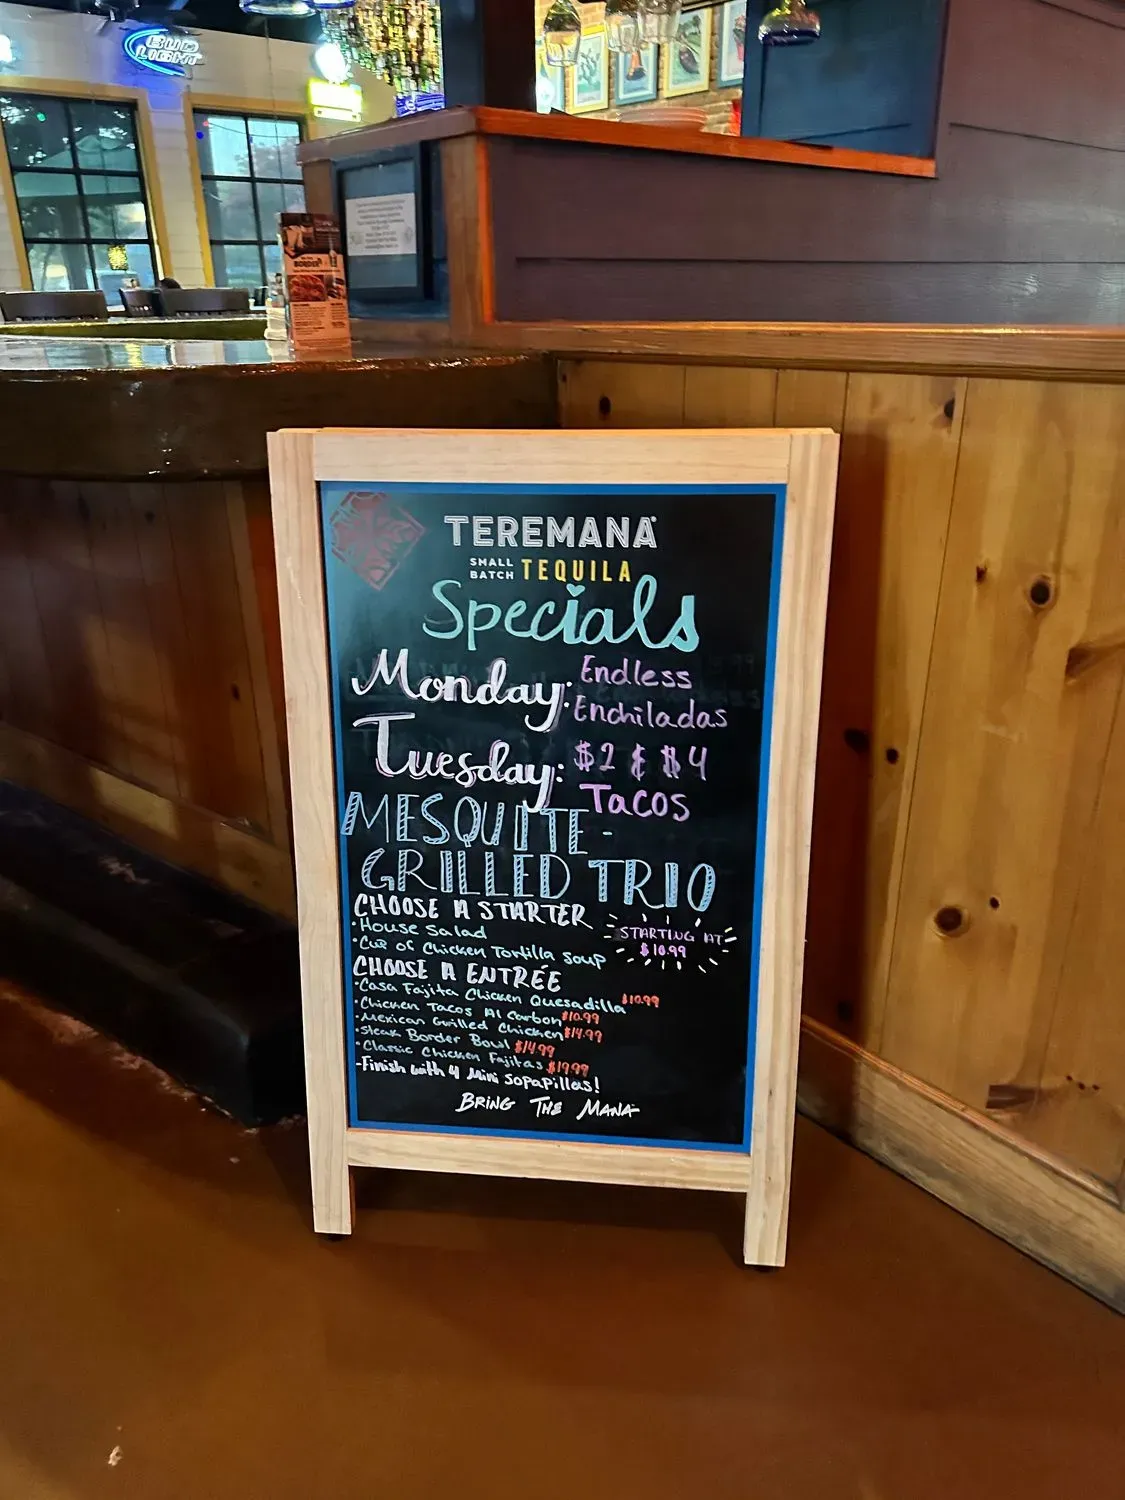 BUD
LIGHT
BORDER
TEREMANA
SMALL
BATCH TEQUILA
Specials
Monday: Endless
Enchiladas
Tuesday: $2 & $4
Tacos
MESQUITE-
GRILLED TRIO
CHOOSE A STARTER
·House Salad
·Cup of Chicken Tortilla Soup
STARTING AT
$10.99
CHOOSE A ENTRÉE
·Casa Fajita Chicken Quesadilla $10.99
·Chicken Tacos Al Carbon $10.99
·Mexican Grilled Chicken $14.99
·Steak Border Bowl $14.99
·Classic Chicken Fajitas $19.99
-Finish with 4 Mini Sopapillas!
BRING THE MANA